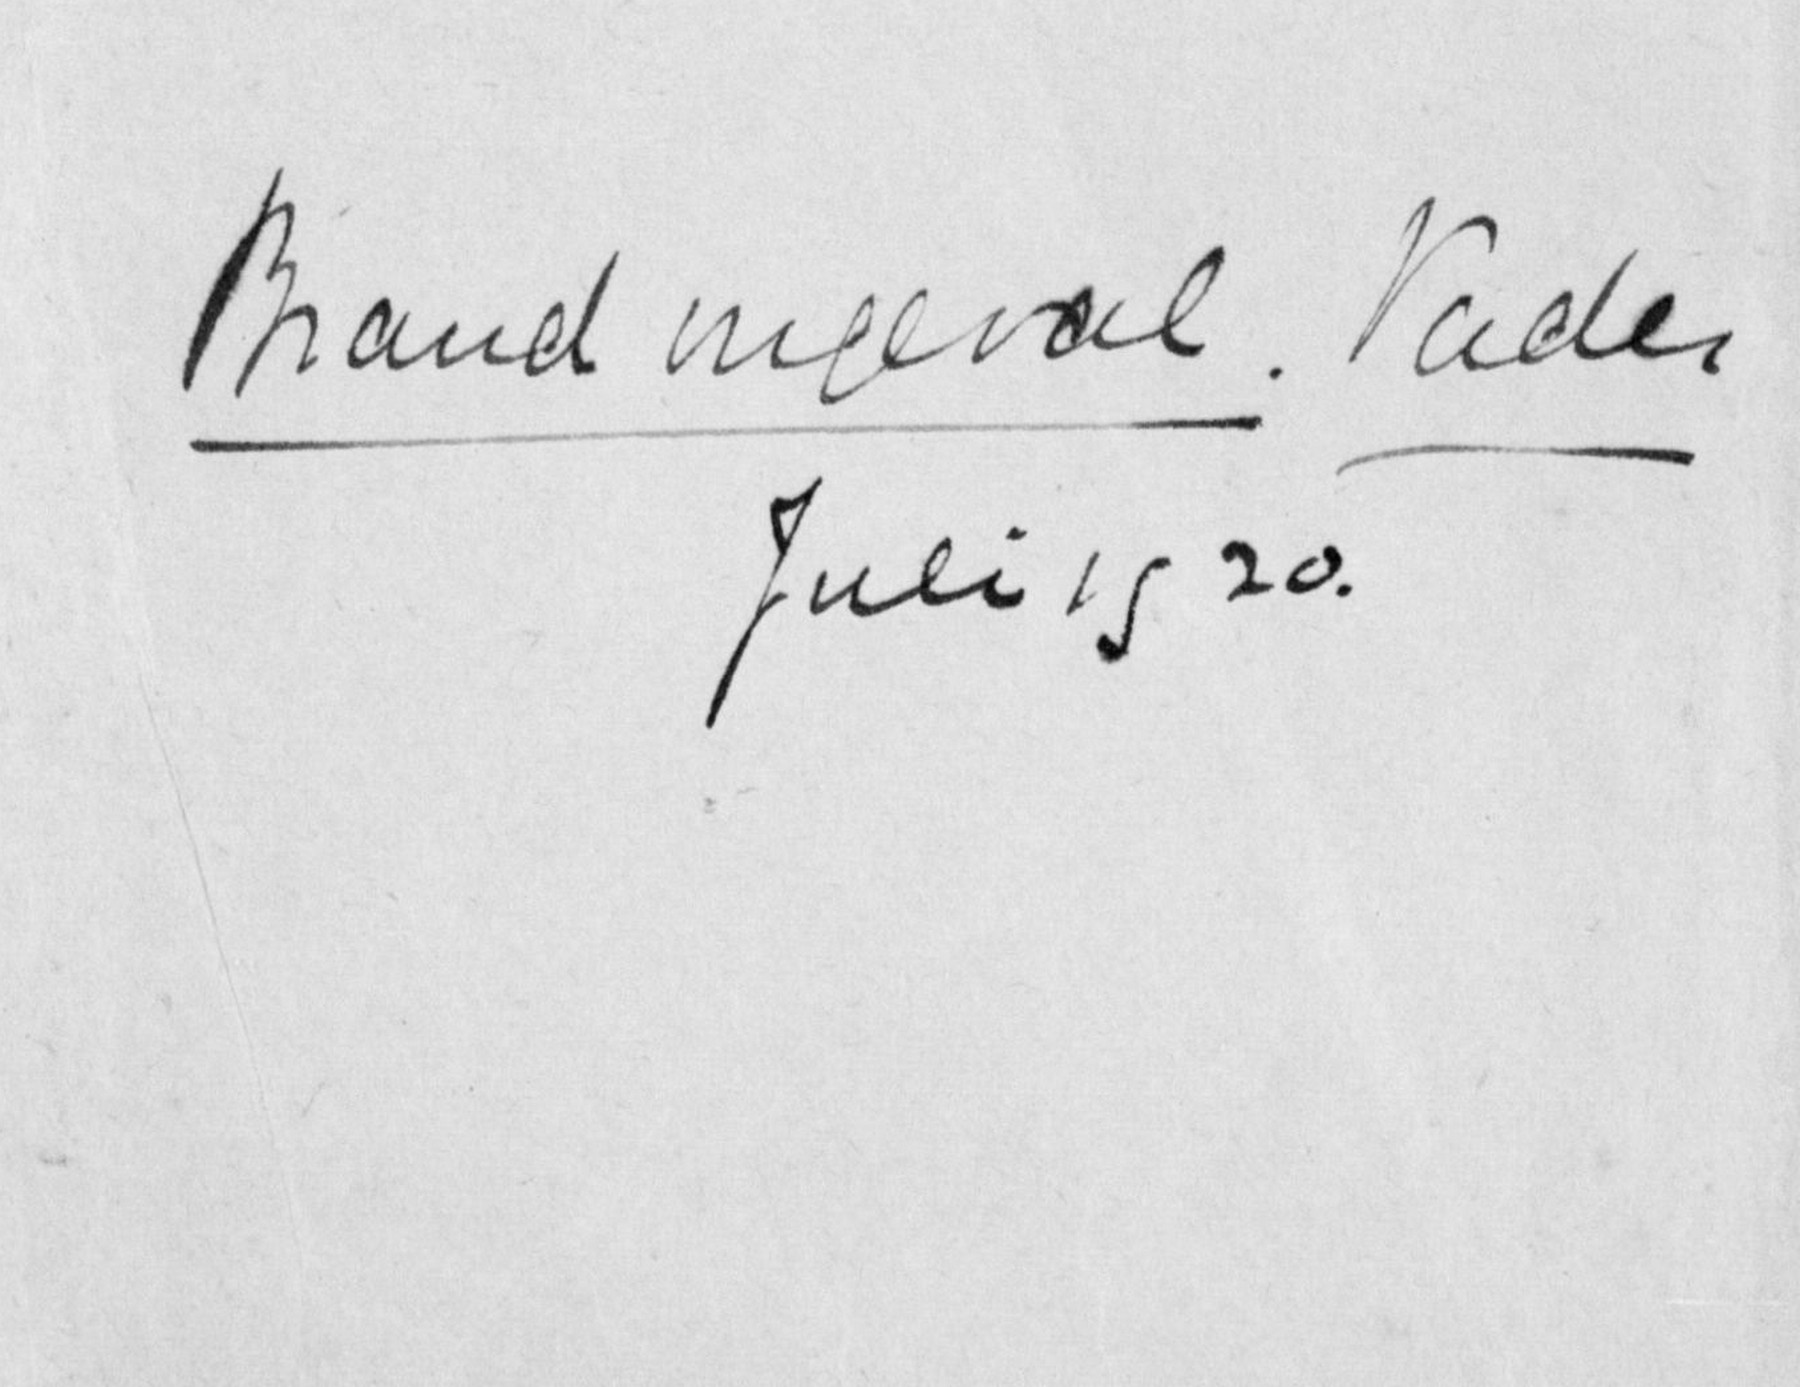 Brand ongeval. Vader
Juli 1920.